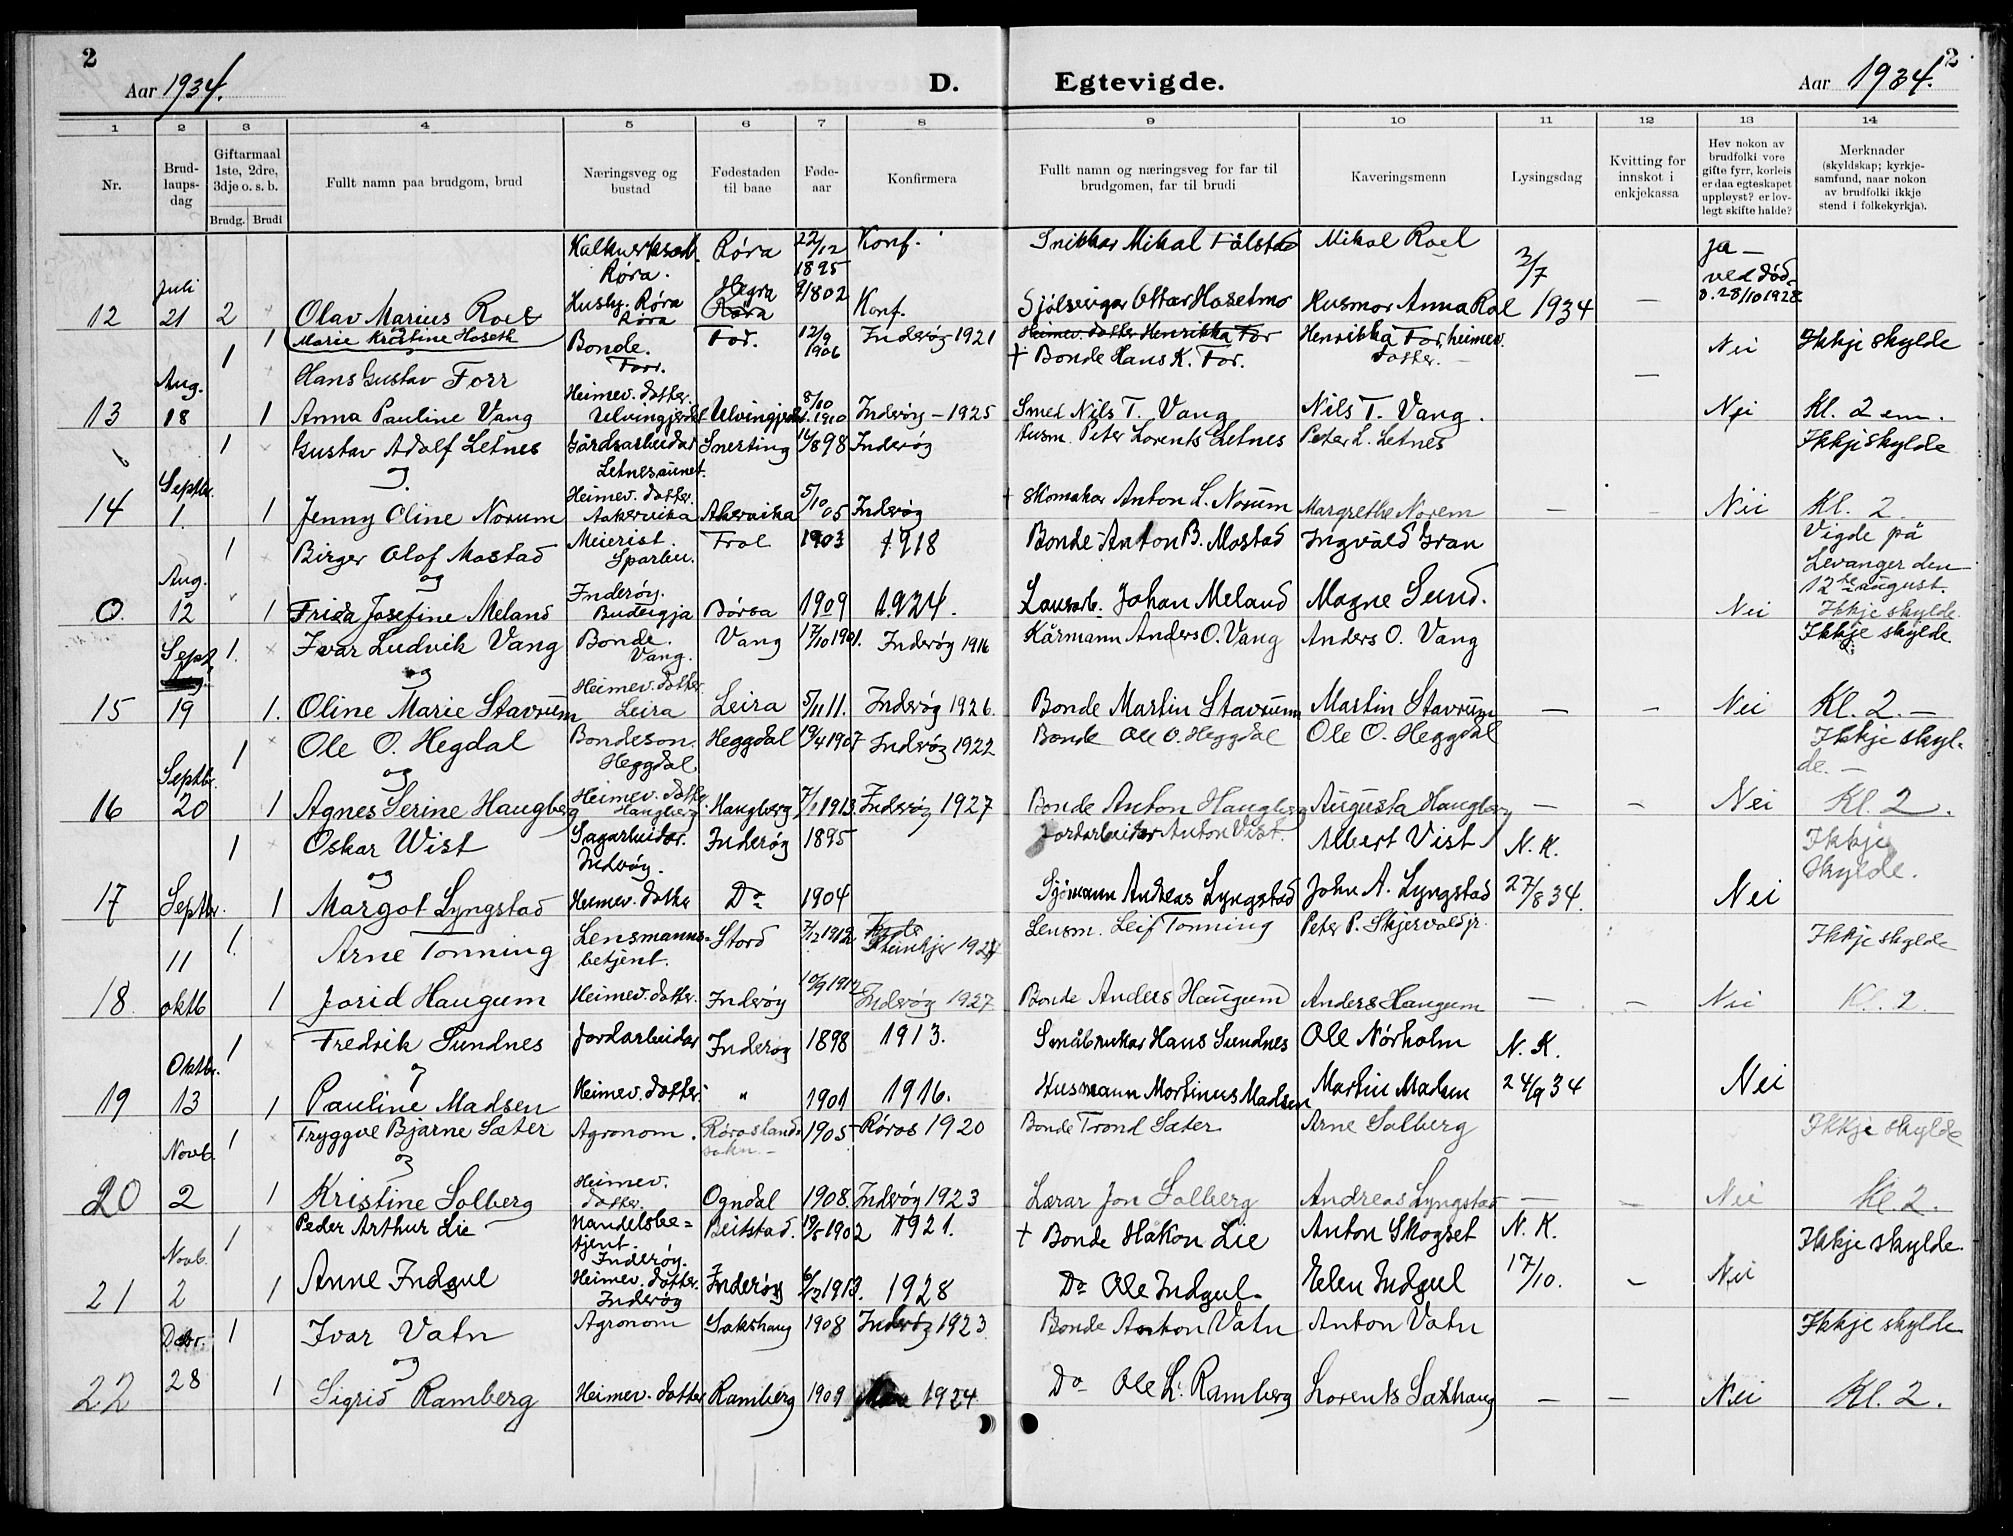 2
Aar 1934.
D.
Egtevigde.
Aar 1934.
2
1 2 3 4 5 6 7 8 9 10 11 12 13 14
Nr.
Brud-
laups-
dag
Giftarmaal
1ste, 2dre,
3dje o. s. b.
Brudg. Brudi
Fullt namn paa brudgom, brud
Næringsveg og
bustad
Fødestaden
til baae
Føde-
aar
Konfirmera
Fullt namn og næringsveg for far til
brudgomen, far til brudi
Kaveringsmenn
Lysingsdag
Kvitting for
innskot i
enkjekassa
Hev nokon av
brudfolki vore
gifte fyrr, korleis
er daa egteskapet
uppløyst? er lov-
legt skifte halde?
Merknader
(skyldskap; kyrkje-
samfund, naar nokon
av brudfolki ikkje
stend i folkekyrkja).
12 Juli 21 2 Olav Marius Roel Røra. Røra 22/12 1895 Konf. Snikkar Mikal Mikal Roel 2/7 1934 Ja - ved død. 28/10 1928
1 Marie Kristine Hoseth Husby. Røra Røra Hegra 02 Konf. Ottar Husmor Anna Roel —
1 Hans Gustav Forr Bonde. Forr. For. 12/9 1906 Inderøy 1921 Heimev. dotter Henrikka For + Bonde Hans K. For. Henrikka For, heimev. dotter. — Nei Ikkje skylde
13 Aug. 18 1 Anna Pauline Vang Heimev. dotter. 5/10 1910 Inderøy - 1925 Smed Nils T. Vang Nils T. Vang. Nei Kl. 2 em.
1 Gustav Adolf Letnes Gårdsarbeidar Snerting 98 Inderøy Husm. Peter Lorents Letnes Peter L. Letnes Ikkje skylde
og
14 Septbr. 1. 1 Jenny Oline Norum Heimev. dotter. Aakervika Akervika 5/10 05 Inderøy + Skomakar Anton L. Norum Margrethe Norem — Nei Kl. 2.
1 Birger Olof Mostad Meierist. Sparbu. Frol 1903 1918 Bonde Anton B. Mostad Ingvald Gran Vigde på
Levanger den
12te august.
og
0. Aug. 12 1 Frida Josefine Meland Inderøy. Budeigja Børsa 1909 1924. Lausarb. Johan Meland Magne Sund. Nei Ikkje skylde.
1. Ivar Ludvik Vang Bonde. Vang. Vang 17/10 1901. Inderøy 1916 Kårmann Anders O. Vang Anders O. Vang Ikkje skylde
og
15 Sept 19 1. Oline Marie Stavrum Heimev. dotter Leira Leira 5/11 11. Inderøy 1926. Bonde Martin Stavrum Martin Stavrum — — Nei Kl. 2. —
1 Ole O. Hegdal Bondeson. Heggdal Heggdal 19/4 1907 Inderøy 1922 Bonde Ole O. Heggdal Ole O. Heggdal Ikkje skyl-
de. —
og
16 Septbr. 20 1 Agnes Serine Haugberg Heimev. dotter Haugberg Haugberg 7/1 1913 Inderøy 1927 Bonde Anton Haugberg Augusta Haugberg — — Nei Kl. 2.
1 Oskar Wist Sagarbeidar. Inderøy. Inderøy 1895 Jordarbeider Anton Vist. Albert Vist N. K. Ikkje
Skylde.
og
17 Septbr. 1 Margot Lyngstad Heimev. dotter Do 1904 Sjømann Andreas Lyngstad John A. Lyngstad 27/8 34. Nei
1. Arne Tonning Lensmanns-
betjent. Stord 7/12 1912 Steinkjer 1927 Lensm. Leif Tonning Peter P. Skjervold jr. Ikkje skylde
18. 11 oktb 1 Jorid Haugum Heimev. dotter. Inderøy 10/9 1912 Inderøy 1927 Bonde Anders Haugum Anders Haugum — — Nei Kl. 2.
1 Fredrik Sundnes Jordarbeidar Inderøy 1898 1913. Småbrukar Hans Sundnes Ole Nørholm N. K.
og
19 Oktbr. 13 1 Pauline Madsen Heimev. dotter " 1901 1916. Husmann Mortinus Madsen Martin Madsen 24/9 34 Nei
1 Tryggve Bjarne Sæter Agronom. Røros lands-
sokn. — 1905 Røros 1920 Bonde Trond Sæter Arne Solberg Ikkje skylde
og
20 Novb. 2 1 Kristine Solberg Heimev. dotter. Ogndal 1908. Inderøy 1923 Lærar Jon Solberg Andreas Lyngstad — — Nei Kl. 2.
1 Peder Arthur Lie Handelsbe-
tjent. Inderøy. Beitstad. 1902 1921. + Bonde Håkon Lie Anton Skogset N. K. Ikkje skylde.
21 Novb. 2 1 Anne Indgul Heimev. dotter. Inderøy Inderøy 6/12 1913. 1928 Do Ole Indgul. Elen Indgul 17/10. — Nei
1 Ivar Vatn Agronom Sakshaug 1908 Inderøy 1923 Bonde Anton Vatn Anton Vatn Ikkje skylde
og
22 Desbr. 28 1 Sigrid Ramberg Heimev. dotter Ramberg 1909 1924 Do Ole L. Ramberg Lorents Sakshaug — — Nei Kl. 2.